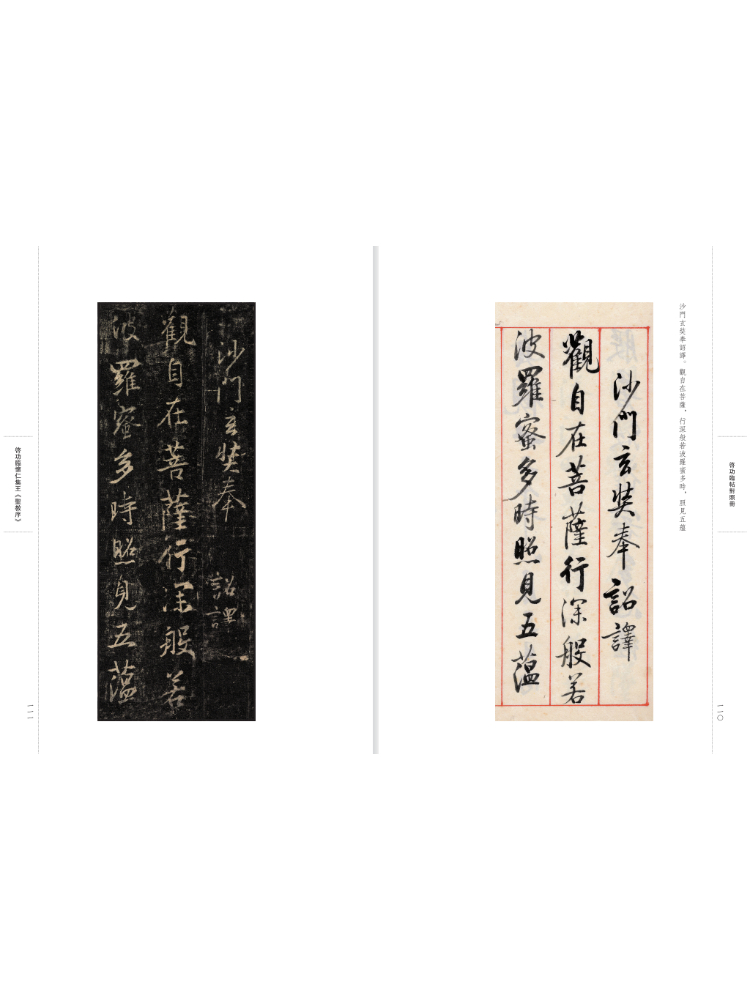 沙門玄奘奉詔譯。觀自在菩薩，行深般若波羅蜜多時，照見五蘊
啓功臨帖對照冊
一一〇
沙門玄奘奉 詔譯
觀自在菩薩行深般若
波羅蜜多時照見五蘊
沙門玄奘奉 詔譯
觀自在菩薩行深般若
波羅蜜多時照見五蘊
啓功臨懷仁集王《聖教序》
一一一